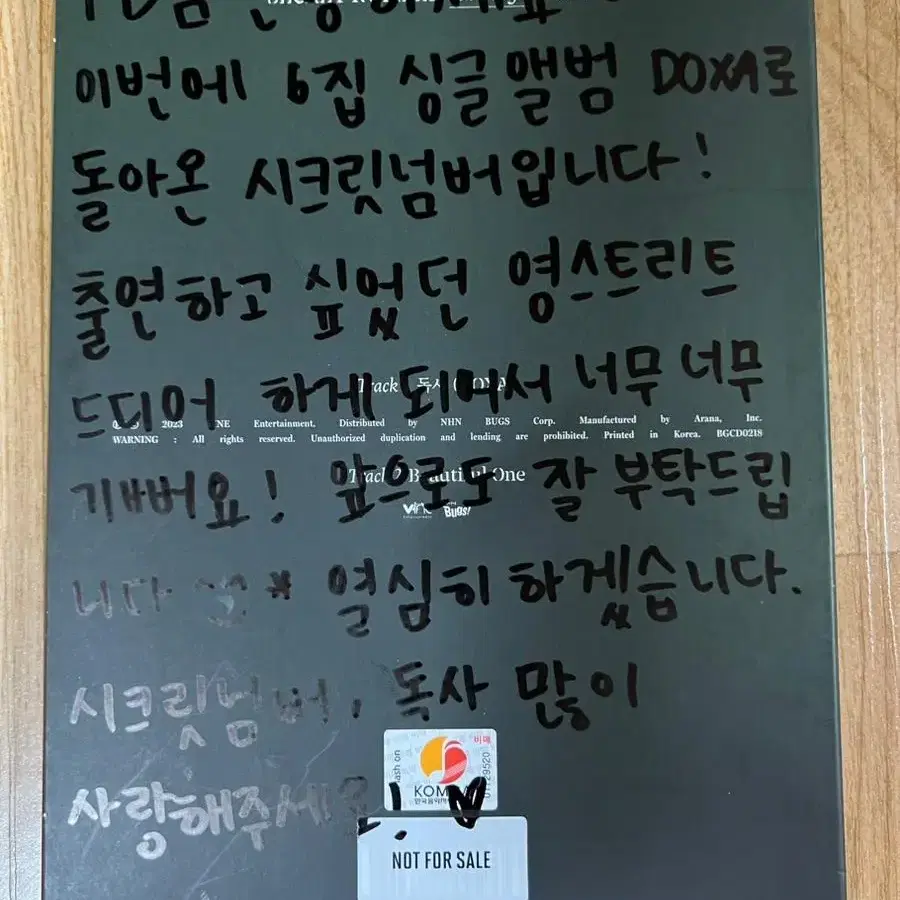 이번에 6집 싱글앨범 DOXA로
돌아온 시크릿넘버입니다!
출연하고 싶었던 영스트리트
Track 독사 (DOXA
드디어 하게 되어서 너무 너무
2023 VINE Entertainment. Distributed by NHN BUGS Corp. Manufactured by Arana, Inc.
WARNING : All rights reserved. Unauthorized duplication and lending are prohibited. Printed in Korea. BGCD0218
기뻐요! 앞으로도 잘 부탁드립
Track 2 Beautiful One
BUGS!
니다 ^^* 열심히 하겠습니다.
시크릿넘버, 독사 많이
비매
KOMCA
사랑해주세요! ♥
NOT FOR SALE